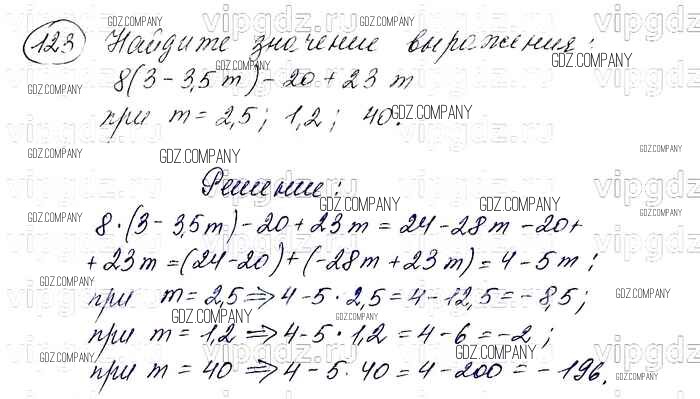 123 Найдите значение выражения:
8(3 - 3,5 m) - 20 + 23 m
при m = 2,5; 1,2; 40.
Решение:
8·(3 - 3,5m) - 20 + 23m = 24 - 28m - 20 +
+ 23m = (24 - 20) + (-28m + 23m) = 4 - 5m;
при m = 2,5 ⇒ 4 - 5 · 2,5 = 4 - 12,5 = - 8,5;
при m = 1,2 ⇒ 4 - 5 · 1,2 = 4 - 6 = - 2;
при m = 40 ⇒ 4 - 5 · 40 = 4 - 200 = - 196.
GDZ.COMPANY
vipgdz.ru